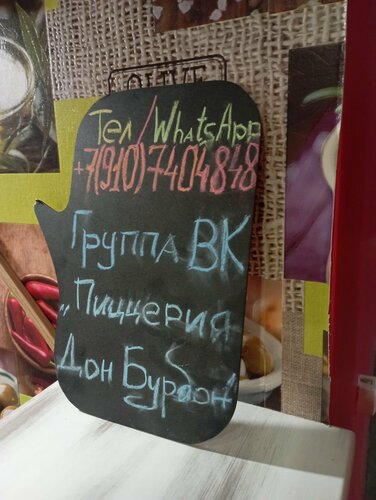 OLIVE
Тел/WhatsApp
+7(910)7404848
Группа ВК
„Пиццерия
Дон Бурбон“